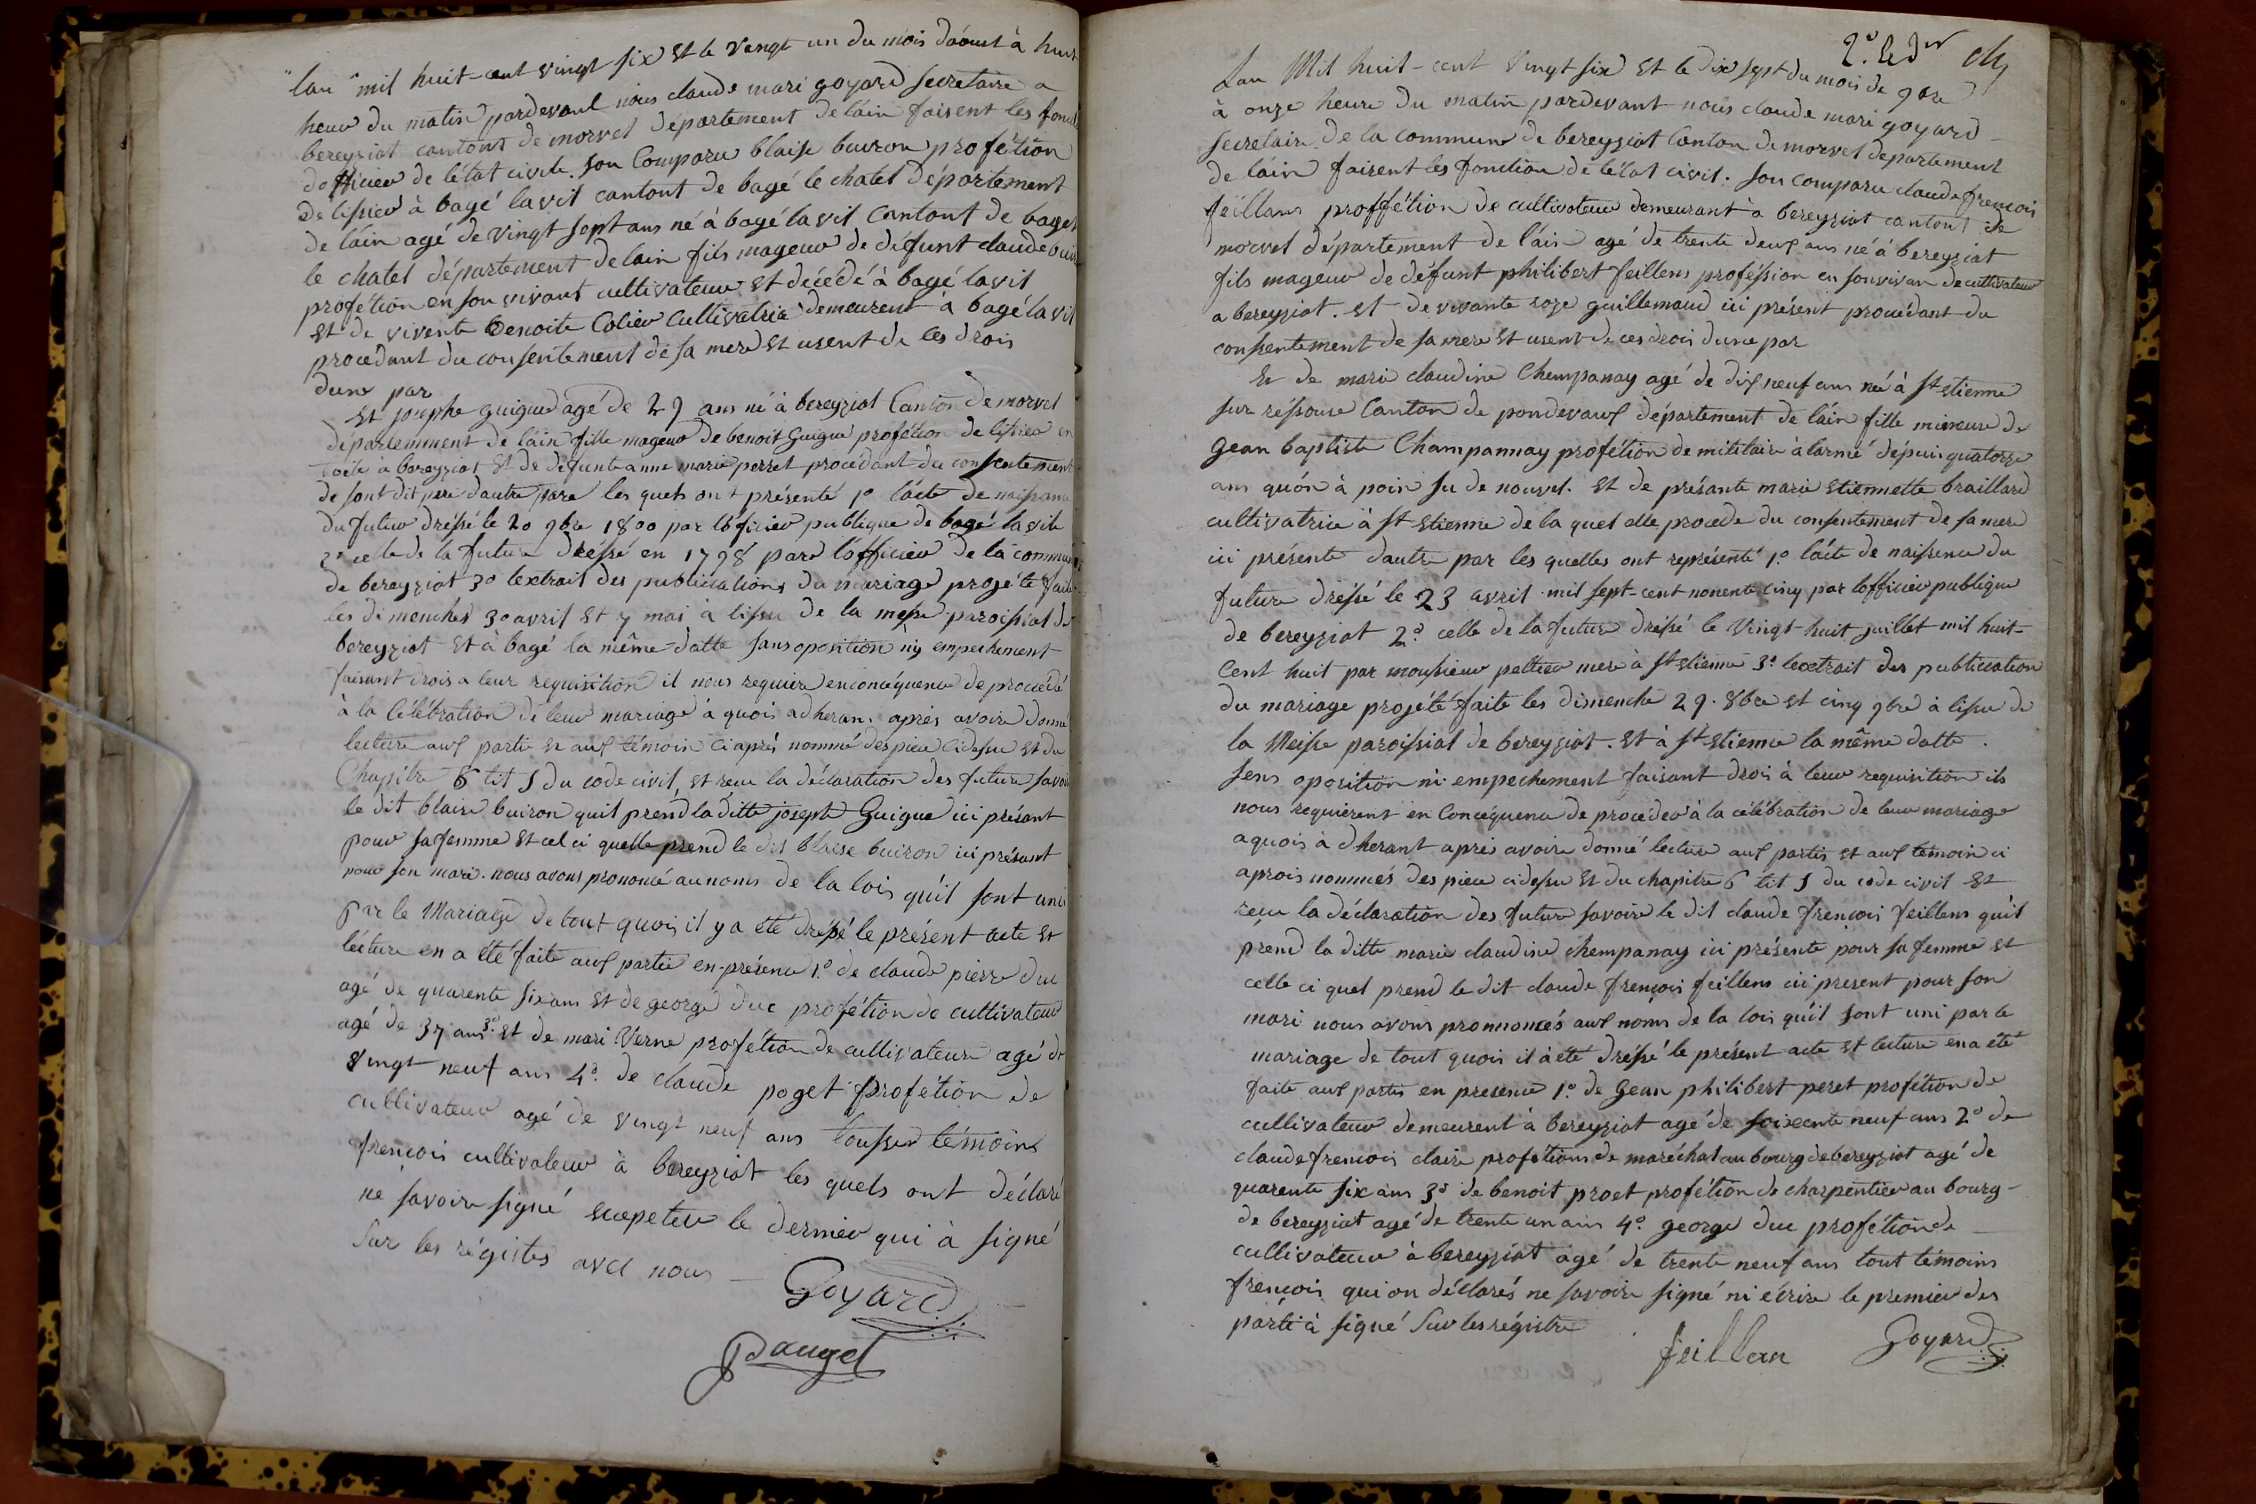 lan mil huit-cent vingt six et le vengt un du mois d'aoust à huit
heur du matin pardevant nous claude mari goyard secretaire a
bereyziat cantont de morvel département de láin faisent les fonct
dofficier de létat civile. son Comparu blaise buiron profétion
de tissier à bagé lavil cantont de bagé le chatel département
de láin agé de vingt sept ans né à bagé lavil cantont de bagé
le chatel département de lain fils mageur de défunt claude bui
profétion en son vivant cultivateur et décédé à bagé lavil
et de vivente benoite Colieu Cultivatrice demeurent à bagé lavil
procedant du consentement de sa mere et usent de les drois
dune par
et josephe guigue agé de 29 ans né à bereyziat Canton de morvel
département de láin fille mageur de benoit Guigue profétion de tissier en
toile à bereyziat et de défunte anne marie perret procédant du consentement
de sont dit pere dautre pare les quels ont présenté 1º lácte de naissance
du futur dréssé le 20 9bre 1800 par lóficier publique de bagé la vil
2º celle de la future dréssé en 1798 pare lófficier de la commun
de bereyziat 3º lextrait des publications du mariage projété fait
les dimenches 30 avril et 7 mai à lissu de la messe paroissial de
bereyziat et à bagé la même datte sans oposition niy empechement
faisant drois a leur requisition il nous requiere enconcéquence de procédé
à la Célébration de leur mariage à quois adheran. après avoire donné
lecture aux partie et aux témoin ci après nommé des piece cidessu et du
Chapitre 6 tit 5 du code civil, et recu la déclaration des future savoi
le dit blaise buiron quil prend la ditte joseph Guigue ici présant
pour sa femme et cel ci quelle prend le dit blaise buiron ici présant
pour son mari. nous avons prononcé au noms de la lois qu'il sont unis
par le Mariage de tout quois il y a été dréssé le présent acte et
lecture en a été faite aux partie en présence 1º de claude pierre duc
agé de quarente six ans et de george duc profétion de cultivateur
agé de 37 ans 3º et de mari Verne profétion de cultivateur agé de
vingt neuf ans 4º de claude poget profétion de
cultivateur agé de vingt neuf ans tousser témoins
frençois cultivateur à bereyziat les quels ont déclaré
ne savoire signé excepeter le dernier qui à signé
Sur les régistes avec nous —
Goyard
Pauget
2º. Le Der
Lan Mil huit-cent vingt six et le dix sept du mois de 9bre
à onze heure du matin pardevant nous claude mari goyard
secretaire de la commune de bereyziat Canton de morvel département
de láin faisent les fonction de létat civil. son comparu claude frencois
feillans proffétion de cultivateur demeurant à bereyziat cantont de
morvel département de láin agé de trente deux ans né à bereyziat
fils mageur de défunt philibert feillens proféssion en sonvivan de cultivateur
a bereyziat. et de vivante roze guillemaud ici présent procédant du
consentement de sa mere et usent de ces drois dune par
Et de mari claudine Chempanay agé de dix neuf ans né à st etienne
sur réssouse Canton de pondevaux département de láin fille mineure de
gean baptiste Champannay profétion de militaire à larmé dépuis quatorze
ans quón à poin su de nouvel. et de présante marie etiennette braillard
cultivatrice à st etienne de la quel elle procede du consentement de sa mere
ici présente dautre par les quelles ont représenté 1º. lácte de naissence du
future dréssé le 23 avril mil sept-cent nonente cinq par lófficier publique
de bereyziat 2º. celle de la future dréssé le Vingt-huit juillet mil huit-
Cent huit par monsieur pelteur mere à st etienne 3º. lextrait des publication
du mariage projété faite les dimenche 29. 8bre et cinq 9bre à lissu de
la Meisse paroissial de bereyziat. et à st etienne la même datte.
sens oposition ni empechement faisant drois à leur requisition ils
nous requierent en Concéquence de proceder à la célébration de leur mariage
a quois à dherant après avoire donné lecture aux partis et aux témoin ci
aprois nommés des piece cidessu et du chapitre 6 tit 5 du code civil et
recu la déclaration des future savoire le dit claude frencois feillens quil
prend la ditte marie claudine Chempanay ici présente pour sa femme et
celle ci quel prend le dit claude frençois feillens ici present pour son
mari nous avons pronnoncés aux noms de la lois quil sont uni par le
mariage de tout quois il à été dréssé le présent acte et lecture en a été
faite aux partis en presence 1º. de Gean philibert peret profétion de
cultivateur demeurent à bereyziat agé de soixcente neuf ans 2º de
claude frencois claire profétions de maréchal au bourg de bereyziat agé de
quarente six ans 3º de benoit proet profétion de charpentier au bourg-
de bereyziat agé de trente un ans 4º. george duc profétion de
cultivateur à bereyziat agé de trente neuf ans tout témoins
frençois qui on déclarés ne savoire signé ni écrire le premier des
parti à signé Sur les régistre
feillan Goyard